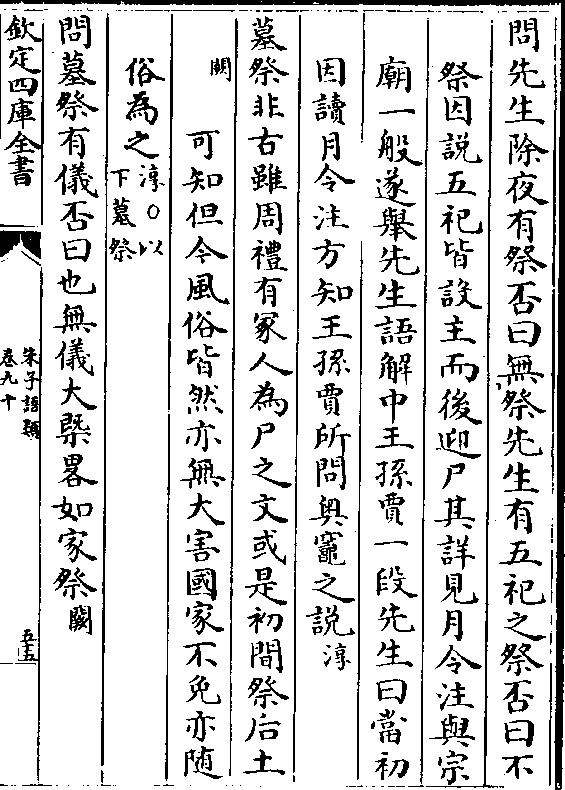 問先生除夜有祭否曰無祭先生有五祀之祭否曰不
祭因説五祀皆設主而後迎尸其詳見月令注與宗
廟一般遂舉先生語解中王孫賈一段先生曰當初
因讀月令注方知王孫賈所問奧竈之説淳
墓祭非古雖周禮有冢人為尸之文或是初間祭后土
闕可知但今風俗皆然亦無大害國家不免亦隨
俗為之淳○以下墓祭
問墓祭有儀否曰也無儀大槩畧如家祭闕
欽定四庫全書
朱子語類
卷九十
五十五